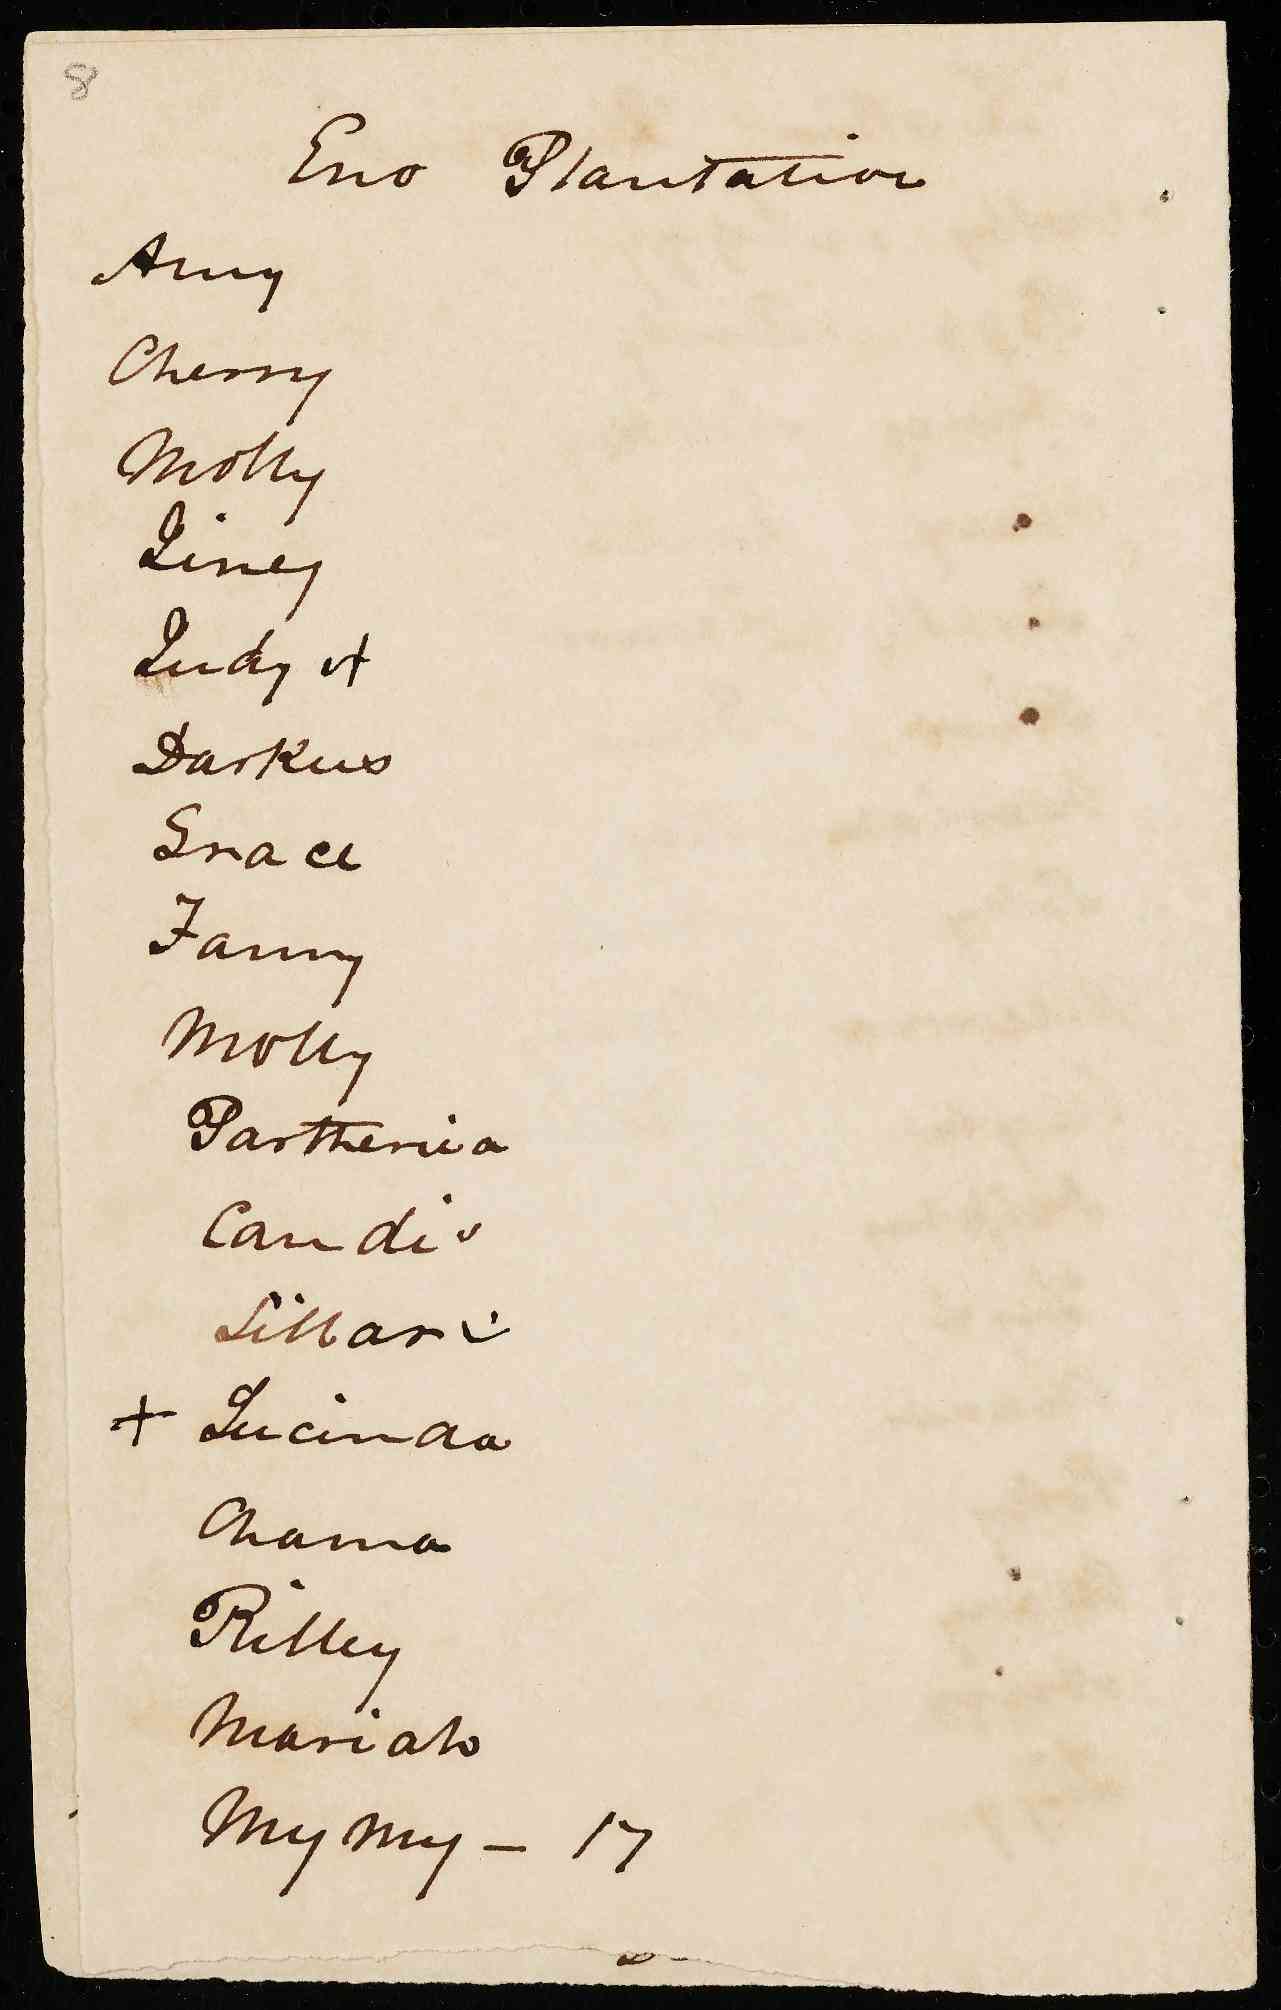 8
Eno Plantation
Amy
Cherry
Molly
Liney
Judy +
Darkus
Grace
Fanny
Molly
Parthenia
Candis
Sillar
+ Lucinda
Chana
Rilley
Mariah
My my - 17